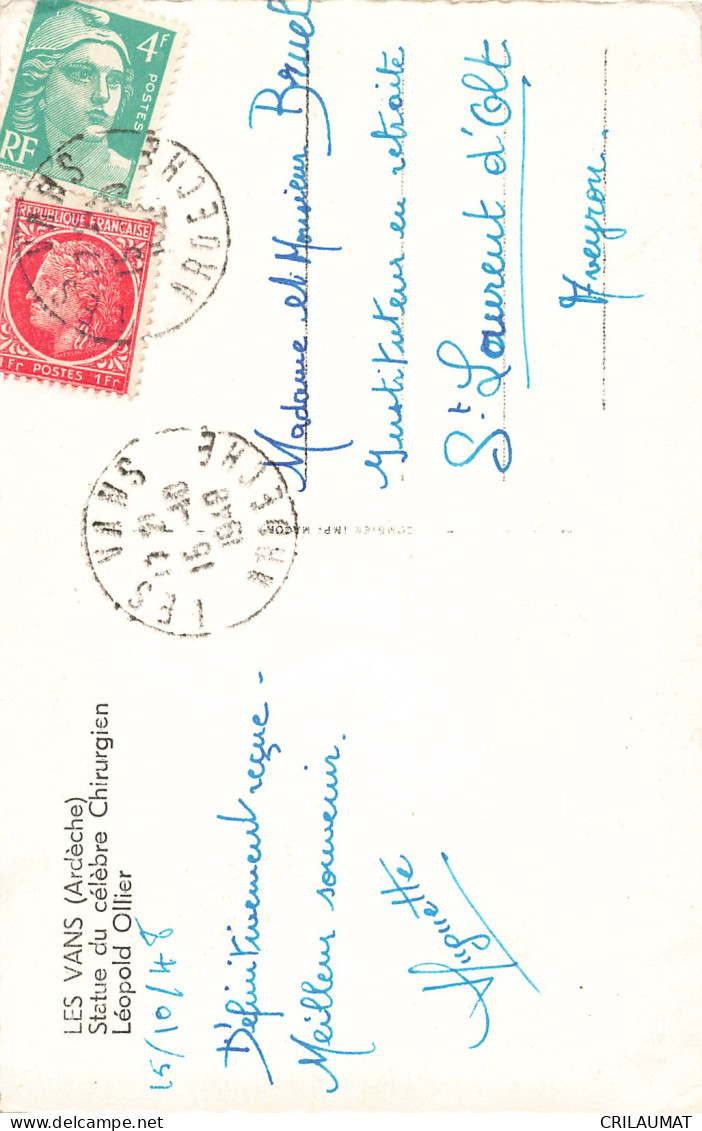 LES VANS (Ardèche)
Statue du célèbre Chirurgien
Léopold Ollier
15/10/48
Définitivement reçue -
Meilleur souvenir.
Huguette
4F
POSTES
RF
REPUBLIQUE FRANÇAISE
1Fr POSTES 1Fr
LES VANS
ARDECHE
16 -10
1948
COMBIER IMP. MACON
Madame et Monsieur Bruel
Instituteur en retraite
St. Laurent d'Olt
Aveyron
CRILAUMAT